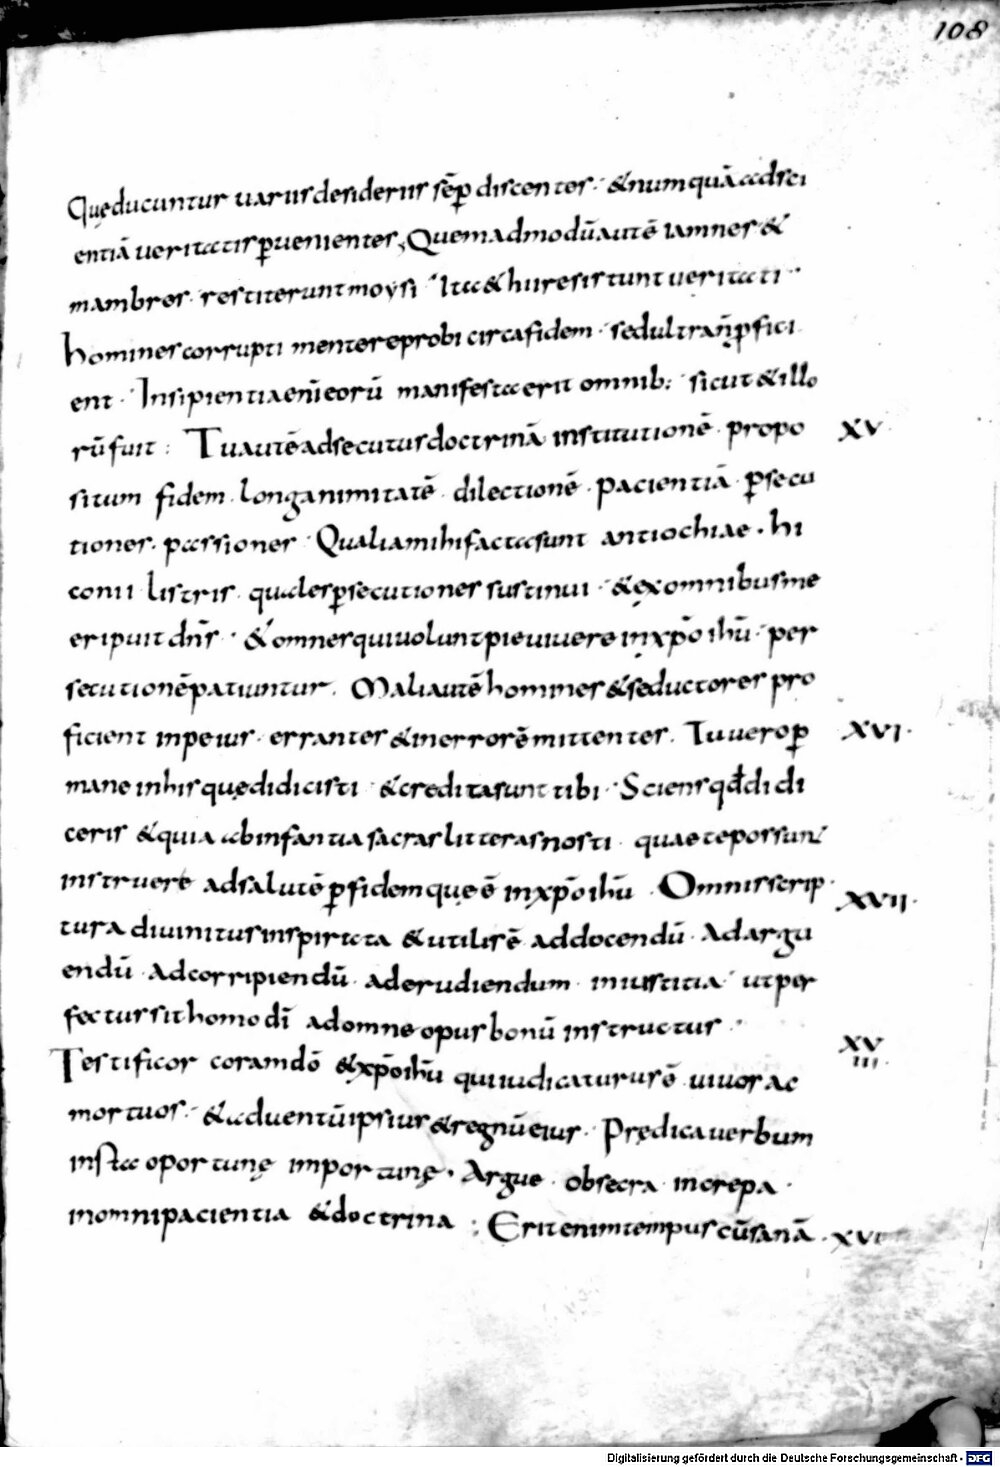 108
Quę ducuntur uariis desideriis sēp discentes· & numquā ad sci
entiā ueritatis puenientes, Quemadmodū autē iamnes &
mambres· restiterunt moysi· Ita & hii resistunt ueritati·
homines corrupti mente reprobi circa fidem· sed ultra ñ pfici
ent· Insipientia enī eorū manifesta erit omnib; sicut & illo
rū fuit: Tu autē adsecutus doctrinā institutionē· propo XV
situm fidem· longanimitatē· dilectionē· pacientiā· psecu
tiones· passiones· Qualia mihi facta sunt antiochiae· hi
conii listris· quales psecutiones sustinui· & ex omnibus me
eripuit dn̄s· & omnes qui uolunt pie uiuere in xp̄o ihū· per
secutionē patiuntur· Mali autē homines & seductores pro
ficient in peius· errantes & in errorē mittentes· Tu uero p XVI·
mane in his quę didicisti· & credita sunt tibi· Sciens qđ di di
ceris & quia ab infantia sacras litteras nosti· quae te possunt
instruere ad salutē p fidem quę ē in xp̄o ihū· Omnis scrip
tura diuinitus inspirata & utilis ē ad docendū· Ad argu XVII·
endū· Ad corripiendū· ad erudiendum· in iustitia· ut per
fectus sit homo dī ad omne opus bonū instructus·
Testificor coram dō & xp̄o ihū qui iudicaturus ē uiuos ac XVIII·
mortuos· & aduentū ipsius & regnū eius· Prędica uerbum
insta oportunę importunę· Argue· obsecra· increpa·
in omni pacientia & doctrina: Erit enim tempus cū sanā·
Digitalisierung gefördert durch die Deutsche Forschungsgemeinschaft - DFG